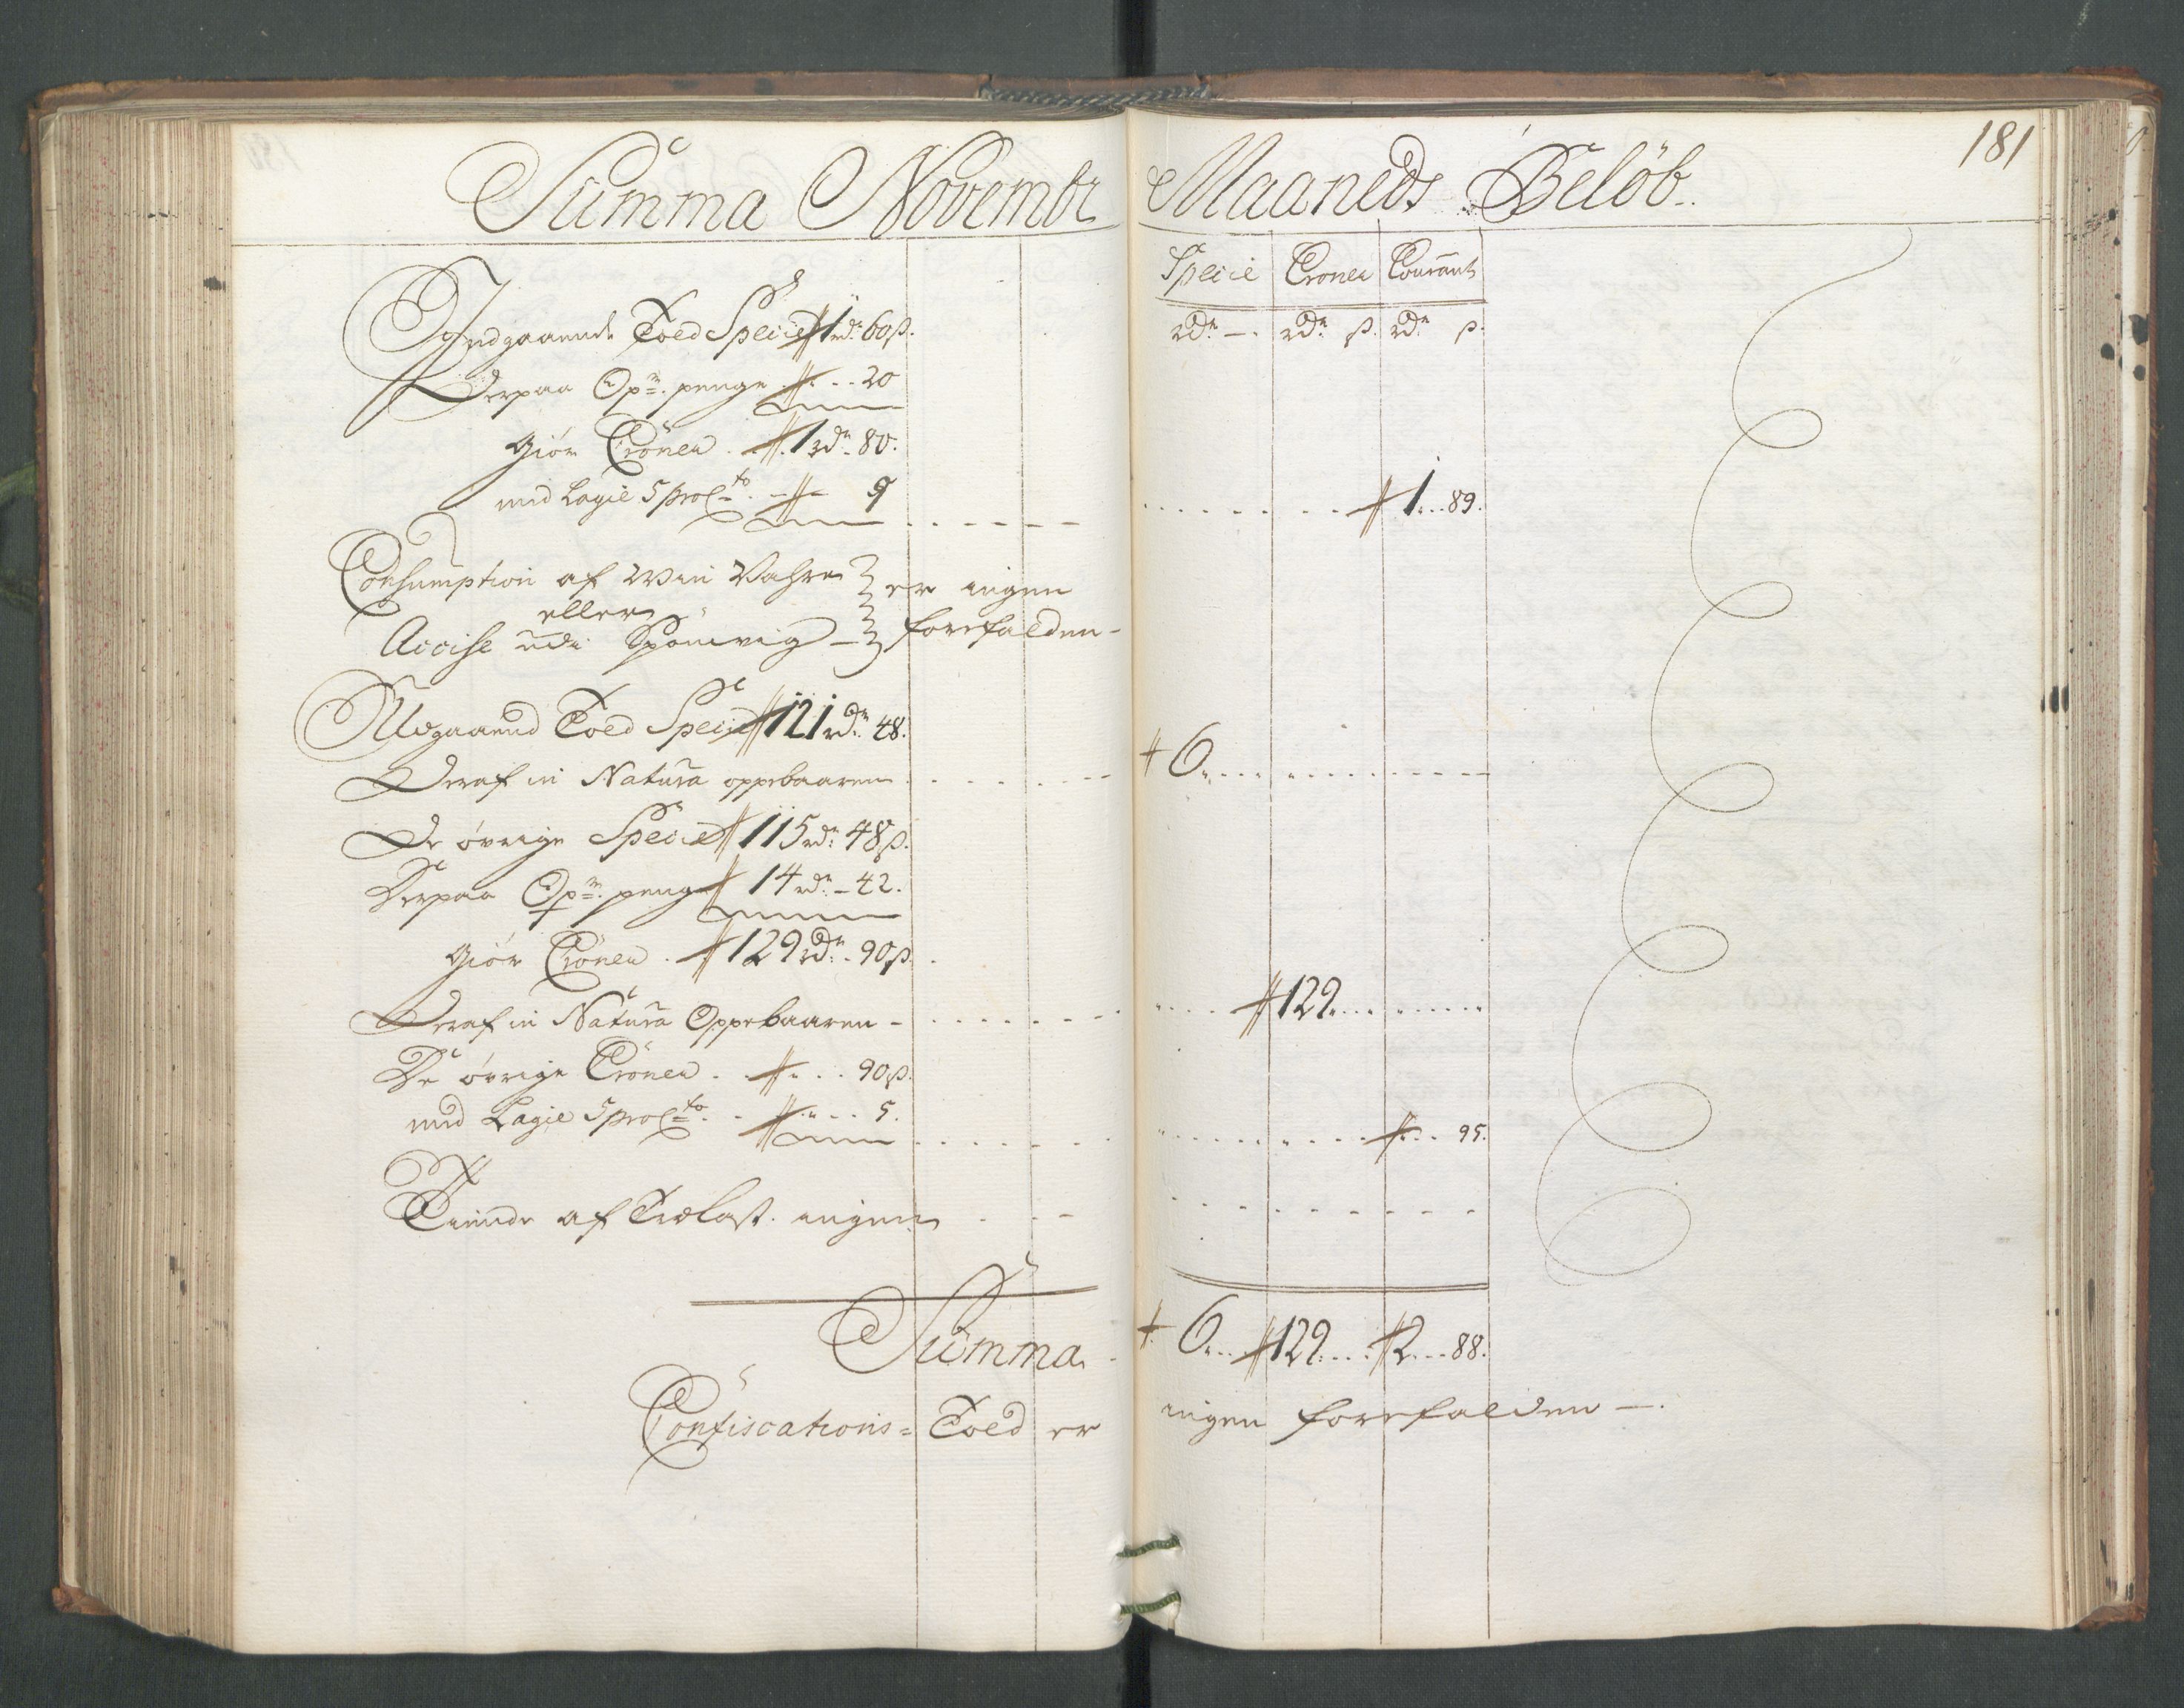 181
Summa Novembr Maaneds Beløb.
Specie Croner Courant
rdr — rdr ß. rdr ß.
Indgaaende Told Specie 1 rdr 60 ß.
Derpaa Opm. penge - - 20
Giör Croner . 1 rdr 80.
med Lagie 5 proCto. - 9 - - - - - - 1 - - 89.
Consumption af Win Vahre er ingen
eller
Accise udi forefalden -
Udgaaend Told Specie 121 rdr 48.
Deraf in Natura oppebaaren - - - - - 6 - - - - - -
De øvrige Specie 115 rdr 48 ß.
Derpaa Opm. penge 14 rdr - 42.
Giör Croner . 129 rdr - 90 ß.
Deraf in Natura Oppebaaren - - - - - - 129 - - - - -
De øvrige Croner . - - - 90 ß.
med Lagie 5 proCto. - - - 5. - - - - - - - - - 95.
Tiende af Trælast. ingen - - - - - - - - -
Summa. 6 - - 129 - - - 2 - - 88.
Confiscations= Told er ingen forefalden —.